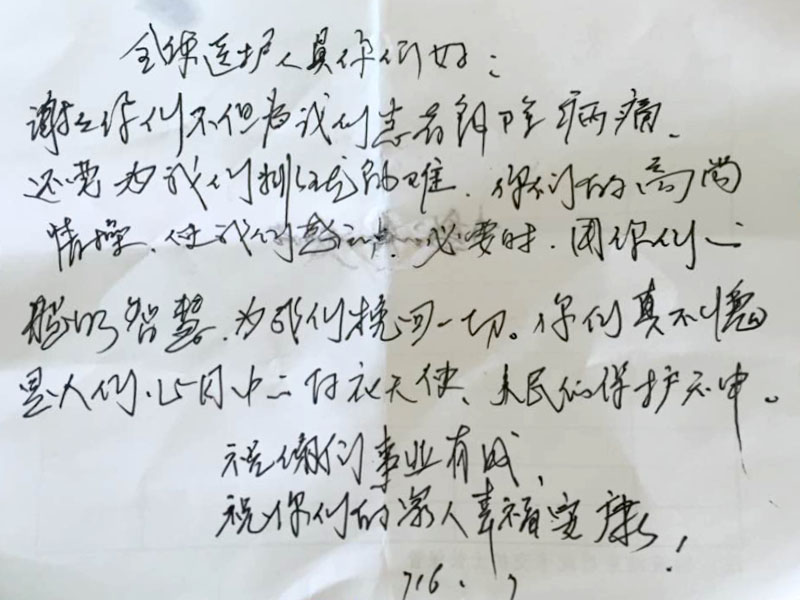 全体医护人员你们好：
谢谢你们不但为我们患者解除病痛、
还要为我们排忧解难、你们的高尚
情操、使我们感 必要时、用你们一
般的智慧、为我们挽回一切。你们真不愧
是人们心目中 白衣天使、人民的保护 。
祝你们事业有成、
祝你们的家人幸福安康！